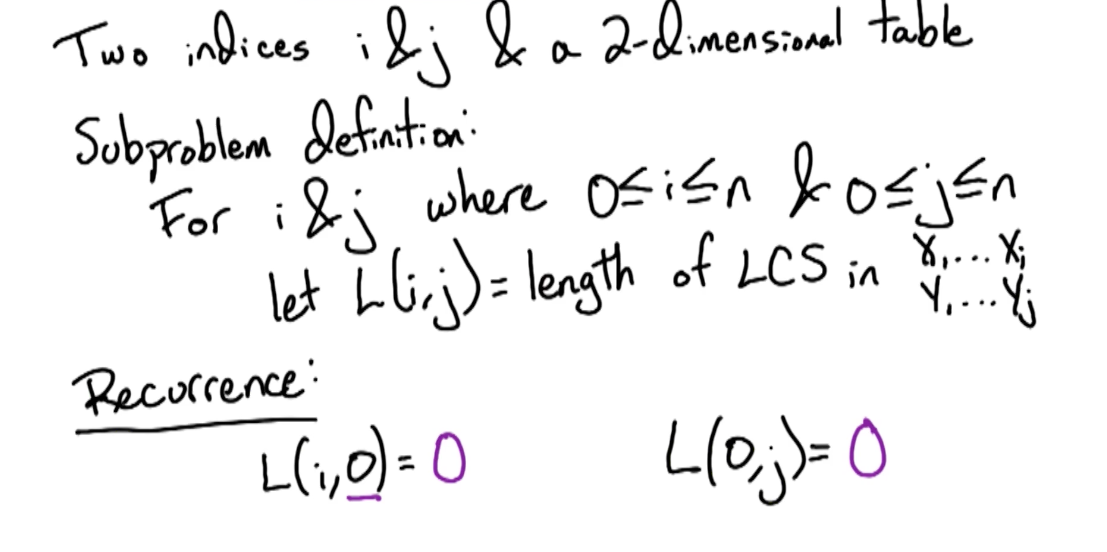 Two indices i & j & a 2-dimensional table
Subproblem definition:
For i & j where 0≤i≤n & 0≤j≤n
let L(i,j)= length of LCS in X₁...Xᵢ
Y₁...Yⱼ
Recurrence:
L(i,0)= 0 L(0,j)= 0